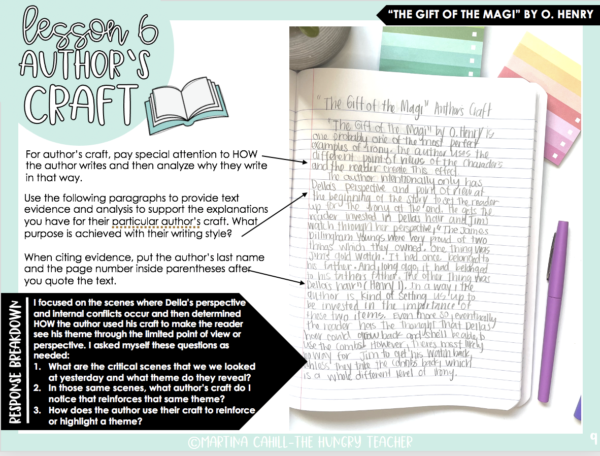 lesson 6
AUTHOR'S
CRAFT
"THE GIFT OF THE MAGI" BY O. HENRY
For author's craft, pay special attention to HOW
the author writes and then analyze why they write
in that way.
Use the following paragraphs to provide text
evidence and analysis to support the explanations
you have for their particular author's craft. What
purpose is achieved with their writing style?
When citing evidence, put the author's last name
and the page number inside parentheses after
you quote the text.
RESPONSE BREAKDOWN
I focused on the scenes where Della's perspective
and internal conflicts occur and then determined
HOW the author used his craft to make the reader
see his theme through the limited point of view or
perspective. I asked myself these questions as
needed:
1. What are the critical scenes that we we looked
at yesterday and what theme do they reveal?
2. In those same scenes, what author's craft do I
notice that reinforces that same theme?
3. How does the author use their craft to reinforce
or highlight a theme?
"The Gift of the Magi" Authors Craft
"The Gift of the Magi" by O. Henry is
one probably one of the most perfect
examples of irony. The author uses the
different point of views of the characters
and the reader create this effect.
The author intentionally only has
Della's perspective and point of view at
the beginning of the story to get the reader
up for the irony at the end. He gets the
reader invested in Della's hair and Jim's
watch through her perspective, "The James
Dillingham Youngs were very proud of two
things which they owned. One thing was
Jim's gold watch. It had once belonged to
his father. And, long ago, it had belonged
to his father's father. The other thing was
Della's hair" (Henry 1). In a way, the
author is kind of setting us up to
be invested in the importance of
these two items. Even more so, eventually
the reader has the thought that Della's
hair could grow back and she'll be able to
use the combs. However, there's most likely
no way for Jim to get his watch back,
unless they take the combs back, which
is a whole different level of irony.
©MARTINA CAHILL-THE HUNGRY TEACHER
9